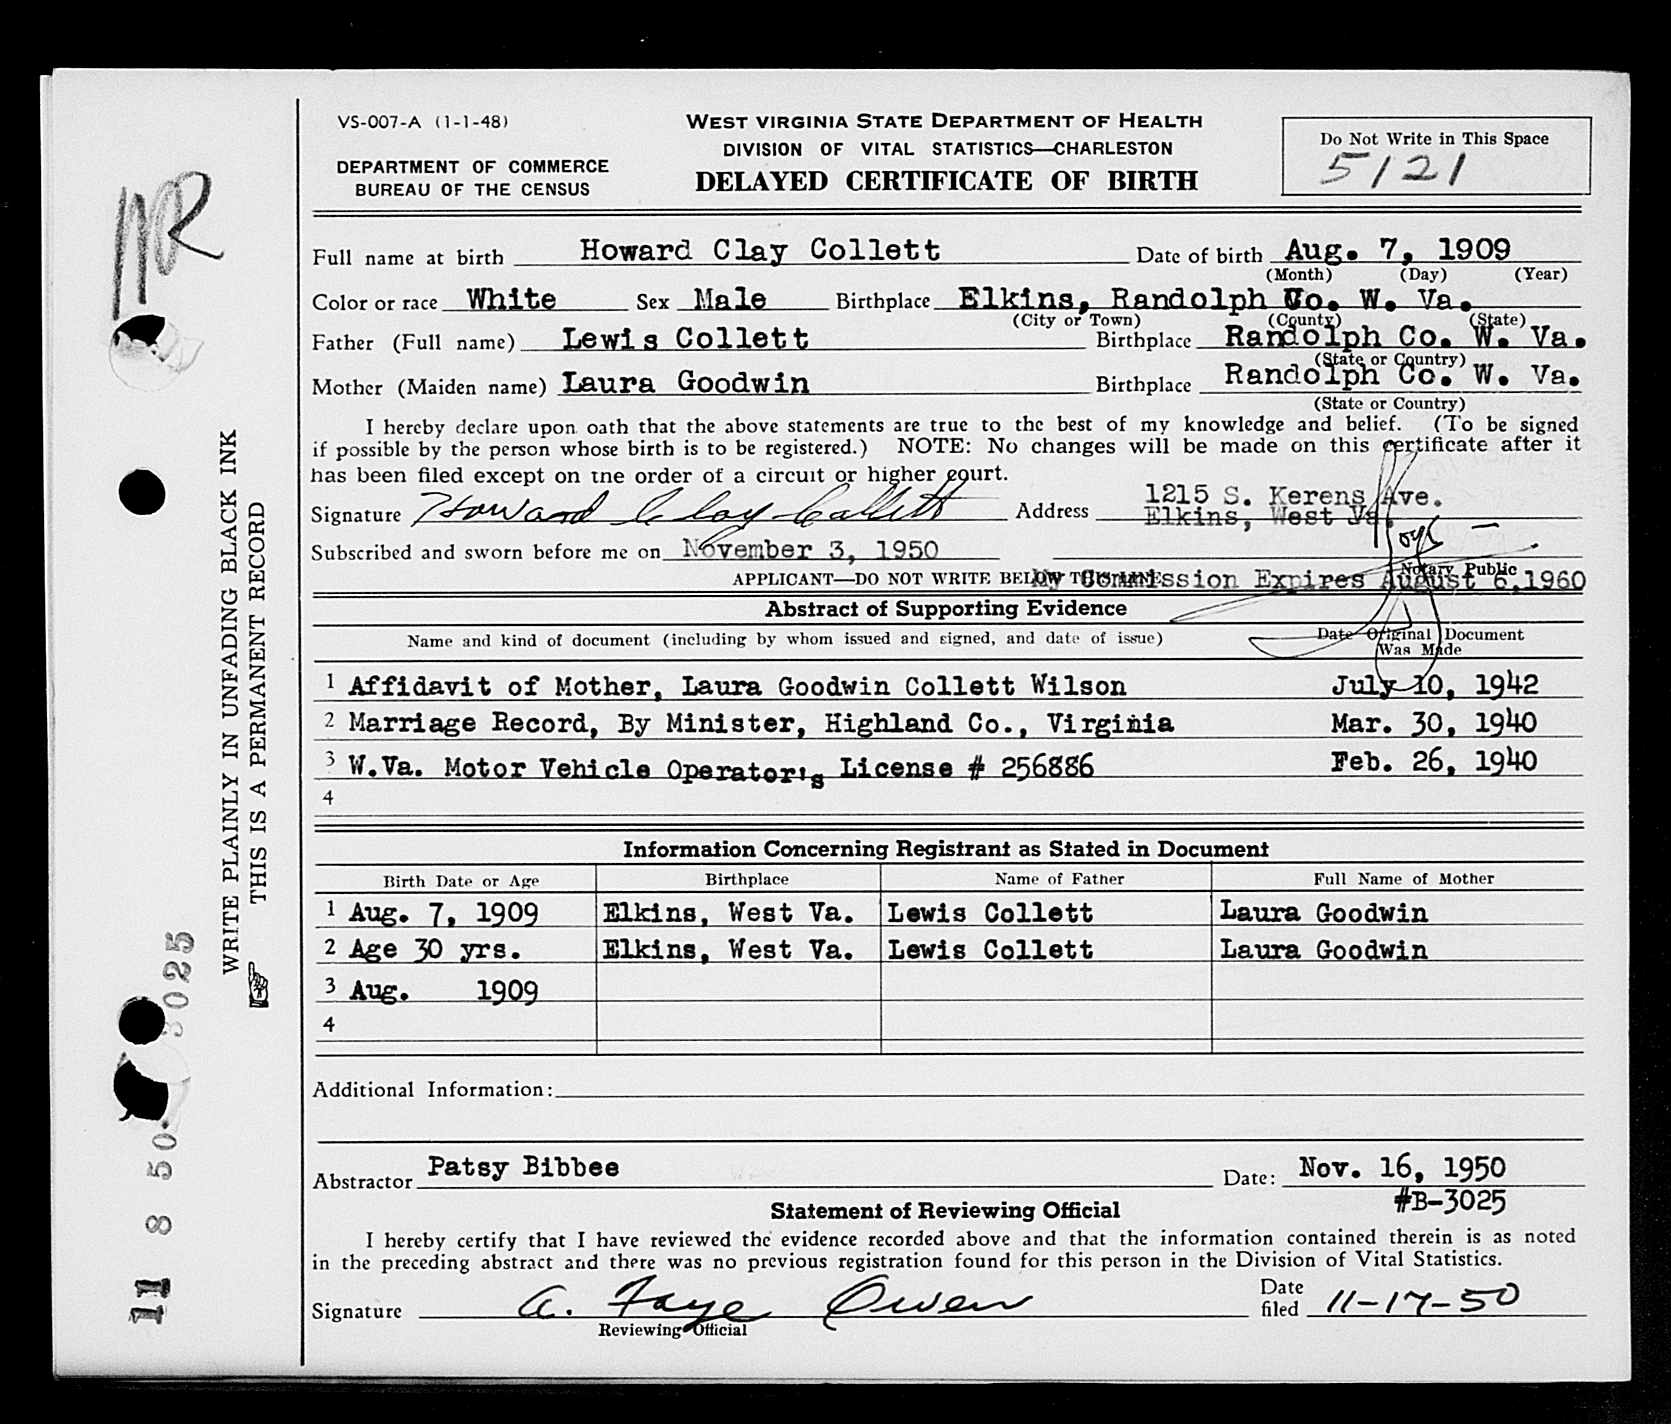 VS-007-A (1-1-48)
DEPARTMENT OF COMMERCE
BUREAU OF THE CENSUS
WEST VIRGINIA STATE DEPARTMENT OF HEALTH
DIVISION OF VITAL STATISTICS—CHARLESTON
DELAYED CERTIFICATE OF BIRTH
Do Not Write in This Space
5121
Full name at birth Howard Clay Collett Date of birth Aug. 7, 1909
(Month) (Day) (Year)
Color or race White Sex Male Birthplace Elkins, Randolph Co. W. Va.
(City or Town) (County) (State)
Father (Full name) Lewis Collett Birthplace Randolph Co. W. Va.
(State or Country)
Mother (Maiden name) Laura Goodwin Birthplace Randolph Co. W. Va.
(State or Country)
I hereby declare upon oath that the above statements are true to the best of my knowledge and belief. (To be signed
if possible by the person whose birth is to be registered.) NOTE: No changes will be made on this certificate after it
has been filed except on the order of a circuit or higher court.
Signature Howard Clay Collett Address 1215 S. Kerens Ave.
Elkins, West Va.
Subscribed and sworn before me on November 3, 1950
Notary Public
APPLICANT—DO NOT WRITE BELOW THIS LINE
My Commission Expires August 6, 1960
Abstract of Supporting Evidence
Name and kind of document (including by whom issued and signed, and date of issue) Date Original Document
Was Made
1 Affidavit of Mother, Laura Goodwin Collett Wilson July 10, 1942
2 Marriage Record, By Minister, Highland Co., Virginia Mar. 30, 1940
3 W.Va. Motor Vehicle Operator's License # 256886 Feb. 26, 1940
4
Information Concerning Registrant as Stated in Document
Birth Date or Age Birthplace Name of Father Full Name of Mother
1 Aug. 7, 1909 Elkins, West Va. Lewis Collett Laura Goodwin
2 Age 30 yrs. Elkins, West Va. Lewis Collett Laura Goodwin
3 Aug. 1909
4
Additional Information:
Abstractor Patsy Bibbee Date: Nov. 16, 1950
#B-3025
Statement of Reviewing Official
I hereby certify that I have reviewed the evidence recorded above and that the information contained therein is as noted
in the preceding abstract and there was no previous registration found for this person in the Division of Vital Statistics.
Signature A. Faye Owen Date
filed 11-17-50
Reviewing Official
WRITE PLAINLY IN UNFADING BLACK INK
THIS IS A PERMANENT RECORD
11 8 50 3025